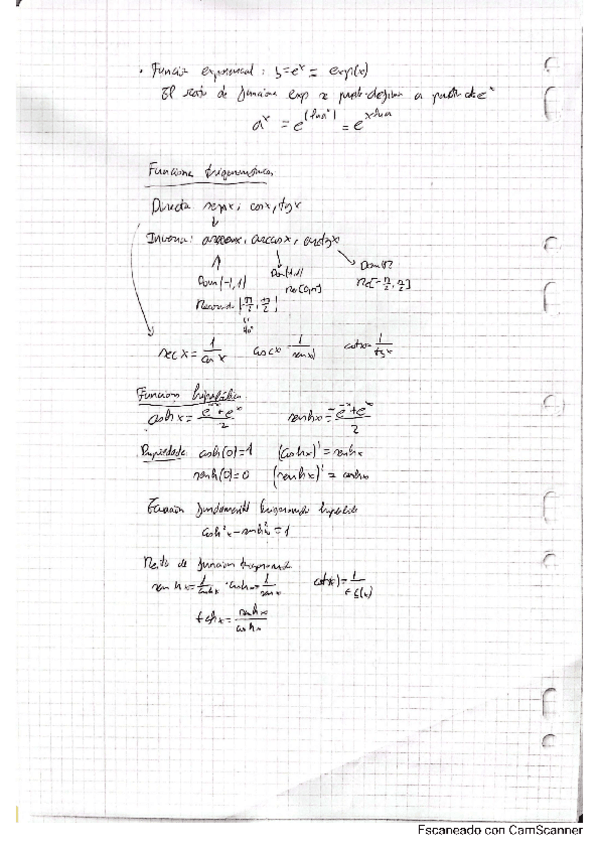 · Función exponencial: y=e^x = exp(x)
El resto de funciones exp se puede definir a partir de e^x
a^x = e^(ln a^x) = e^(x ln a)
Funciones trigonométricas
Directa senx, cosx, tgx
Inversa: arcsenx, arccosx, arctgx
Dom[-1,1] Dom[-1,1] Dom ℝ
Recorrido [-π/2, π/2] Re[0,π] Re[-π/2, π/2]
sec x = 1/cos x cosc x = 1/senx cotx = 1/tgx
Funciones hiperbólicas
cosh x = (e^-x + e^x)/2 senhx = (e^-x + e^x)/2
Propiedades cosh(0)=1 (coshx)' = senhx
senh(0)=0 (senhx)' = coshx
Ecuación fundamental trigonometría hiperbólica
cosh²x - senh²x = 1
Resto de funciones
tghx = senhx/coshx
Escaneado con CamScanner